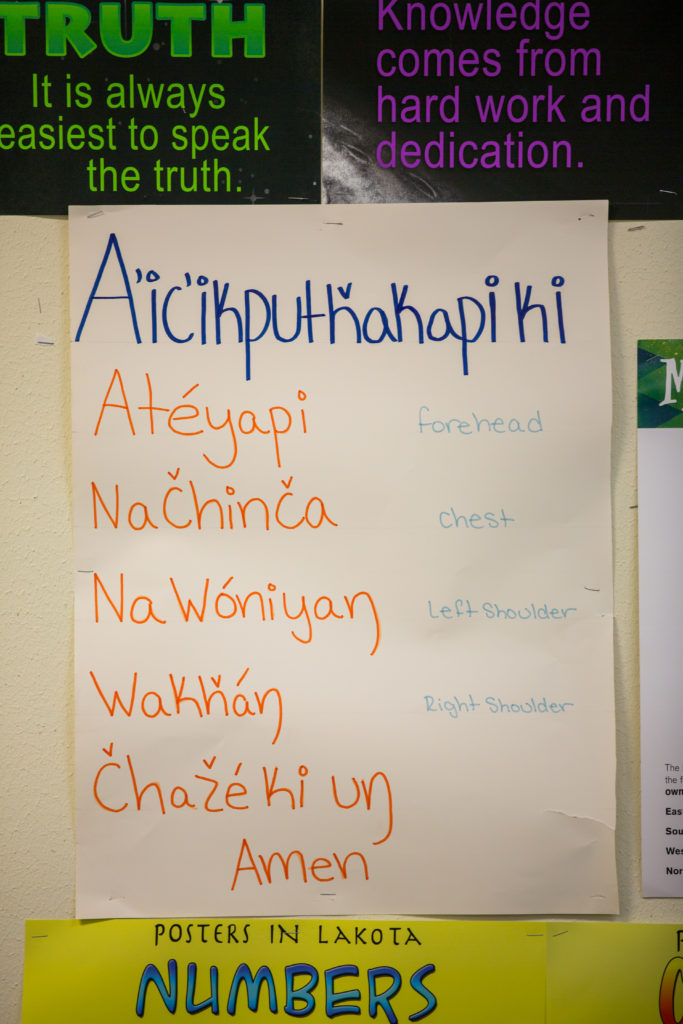 TRUTH
It is always
easiest to speak
the truth.
Knowledge
comes from
hard work and
dedication.
A'ic'ikputȟakapi ki
Atéyapi forehead
Na Čhinča chest
Na Wóniyaŋ Left Shoulder
Wakȟáŋ Right Shoulder
Čhažé ki uŋ
Amen
The
the f
own
Eas
Sou
Wes
Nor
POSTERS IN LAKOTA
NUMBERS